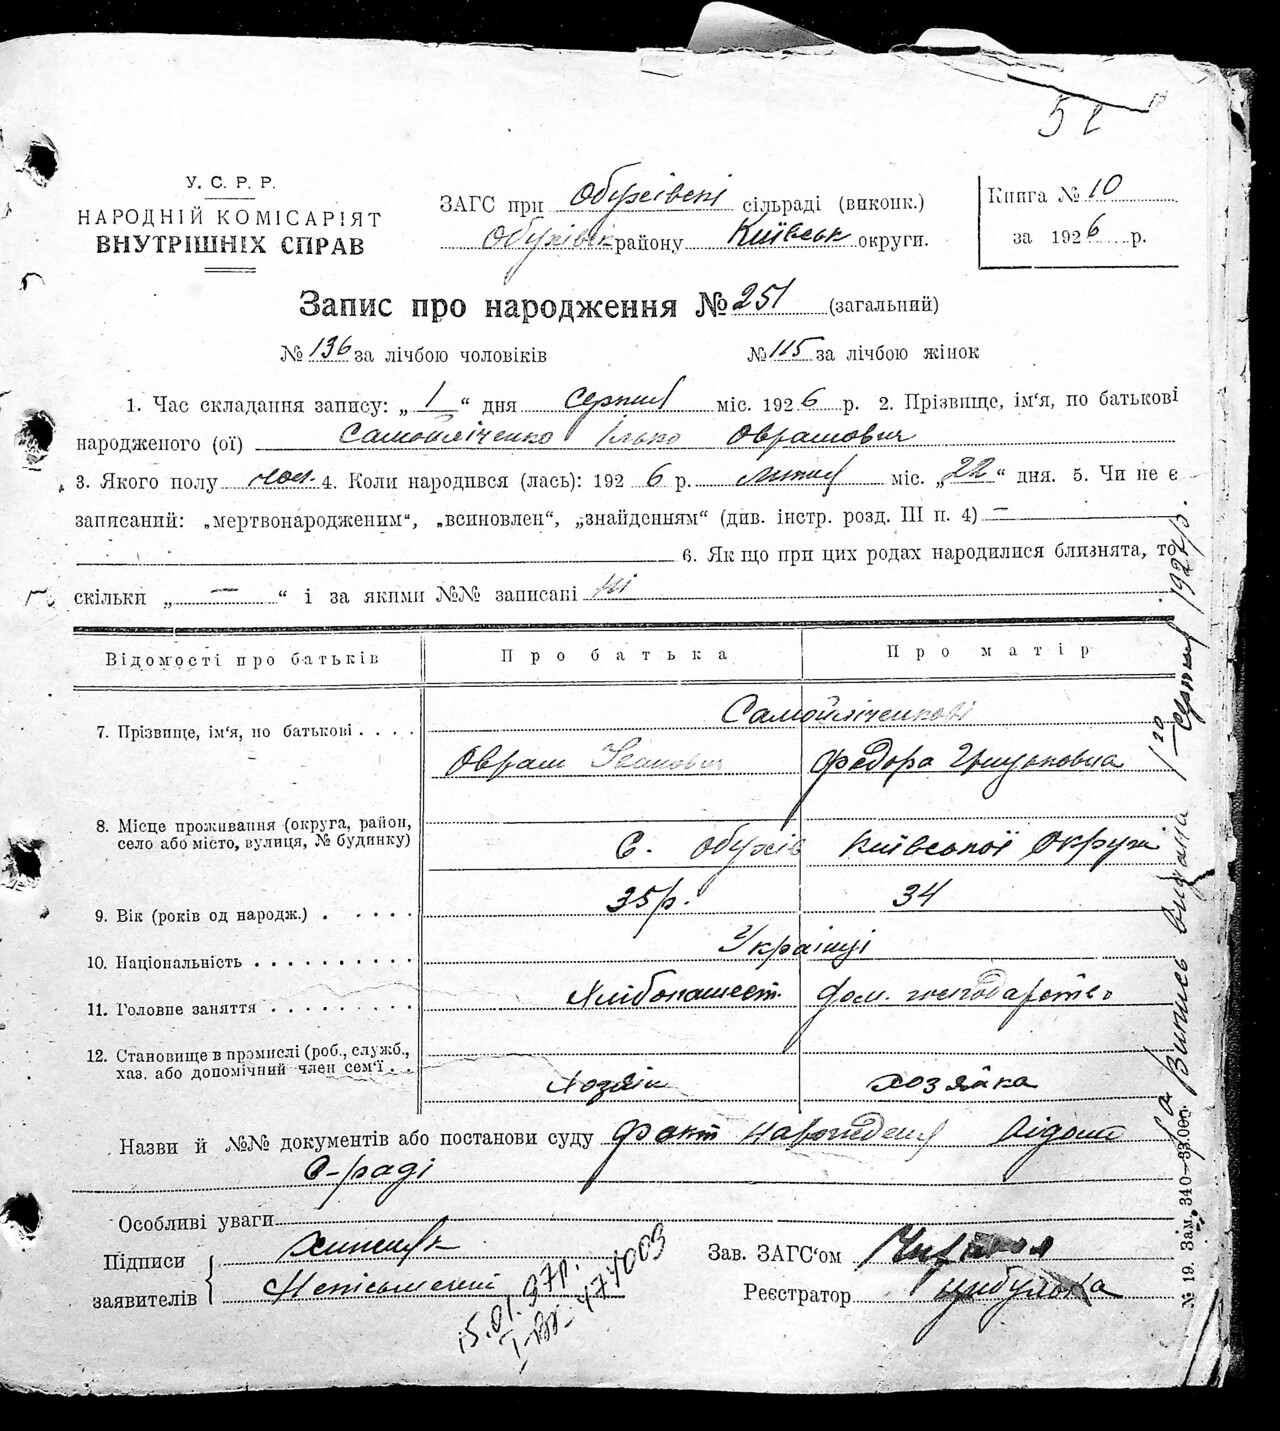 52
У. С. Р. Р.
НАРОДНІЙ КОМІСАРІЯТ
ВНУТРІШНІХ СПРАВ
ЗАГС при Обухівскі сільраді (виконк.)
Обухівск району Київськ округи.
Книга № 10
за 1926 р.
Запис про народження № 251 (загальний)
№ 136 за лічбою чоловіків № 115 за лічбою жінок
1. Час складання запису: „ 1 “ дня серпня міс. 1926 р. 2. Прізвище, ім'я, по батькові
народженого (ої) Самойліченко Ілько Оврамович
3. Якого полу чол. 4. Коли народився (лась): 1926 р. липня міс. „22“ дня. 5. Чи не є
записаний: „мертвонародженим“, „всиновлен“, „знайденням“ (див. інстр. розд. III п. 4) —
6. Якщо при цих родах народилися близнята, то
скільки „ — “ і за якими №№ записані ні
Відомості про батьків Про батька Про матір
Самойліченкові
7. Прізвище, ім'я, по батькові . . . .
Оврам Іванович Федора Грицьковна
8. Місце проживання (округа, район,
село або місто, вулиця, № будинку)
С. Обухів Київської Округи
9. Вік (років од народж.) . . . . . 35 р. 34
10. Національність . . . . . . . . . . Українці
11. Головне заняття . . . . . . . . Хлібопашест. Дом. господарство
12. Становище в промислі (роб., служб.,
хаз. або допомічний член сем'ї . .
Хозяїн хозяйка
Назви й №№ документів або постанови суду Факт народження відом
С-раді
Особливі уваги
Підписи
заявителів
Неписьменний
Зав. ЗАГС'ом
Реєстратор Цибулька
15.01.97р.
474003
Випись видана 20 серпня 192 р.
№ 19. Зам. 340—35.000.